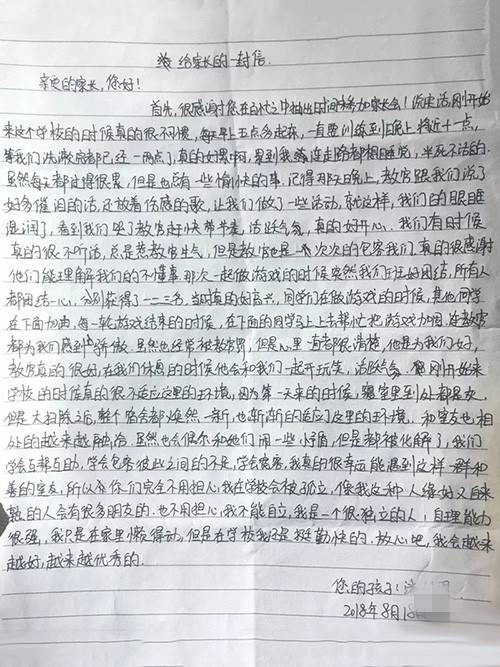 给家长的一封信
亲爱的家长，您好！
首先，很感谢您在百忙之中抽出时间来参加家长会！说实话刚开始
来这个学校的时候真的很不习惯，每天早上五点多起床，一直要训练到晚上将近十一点，
等我们洗漱完都已经一两点了，真的好累啊，累到我连走路都想睡觉，半死不活的。
虽然每天都过得很累，但是也总有一些愉快的事，记得那天晚上，教官跟我们说了
好多催泪的话，还放着伤感的歌，让我们做了一些活动，就这样，我们的眼眶
湿润了，看到我们哭了教官赶快带节奏，活跃气氛，真的好开心。我们有时候
真的很不听话，总是惹教官生气，但是教官也是一次次的包容我们，真的很感谢
他们能理解我们的不懂事，那次一起做游戏的时候突然我们班好团结，所有人
都团结一心，分别获得了一二三名，当时真的好高兴，同学们在做游戏的时候，其他同学
在下面加油，每一轮游戏结束的时候，在下面的同学马上去帮忙把游戏加固，连教官
都为我们感到骄傲。虽然也经常被教官骂，但是心里一直都很清楚，他是为我们好，
教官真的很好，在我们休息的时候他会和我们一起开玩笑，活跃气氛。刚开始来
学校的时候真的很不适应这里的环境，因为第一天来的时候，寝室里到处都是灰，
但是大扫除之后，整个宿舍都焕然一新，也渐渐的适应了这里的环境，和室友也相
处的越来越融洽，虽然也会偶尔和她们闹一些矛盾，但是都被化解了，我们
学会互帮互助，学会包容彼此之间的不足，学会宽容，我真的很幸运能遇到这样一群和
善的室友，所以今你们完全不用担心，我在学校会被孤立，像我这种人缘好又自来
熟的人会有很多朋友的，也不用担心，我不能自立，我是一个很独立的人，自理能力
很强，我只是在家里懒得动，但是在学校我还是挺勤快的。放心吧，我会越来
越好，越来越优秀的。
您的孩子：
2018年8月18